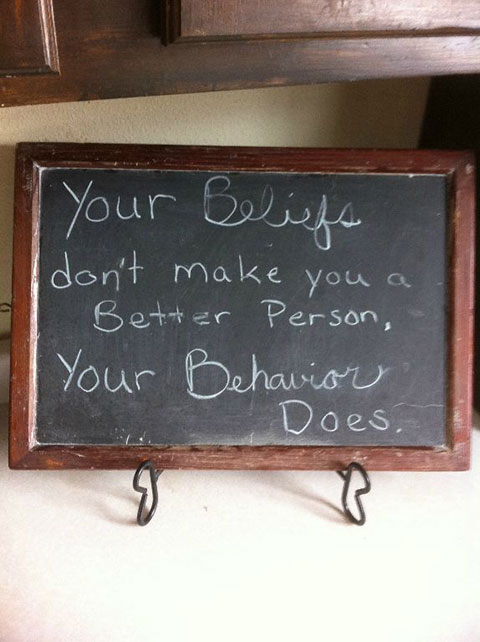 Your Beliefs
don't make you a
Better Person,
Your Behavior
Does.